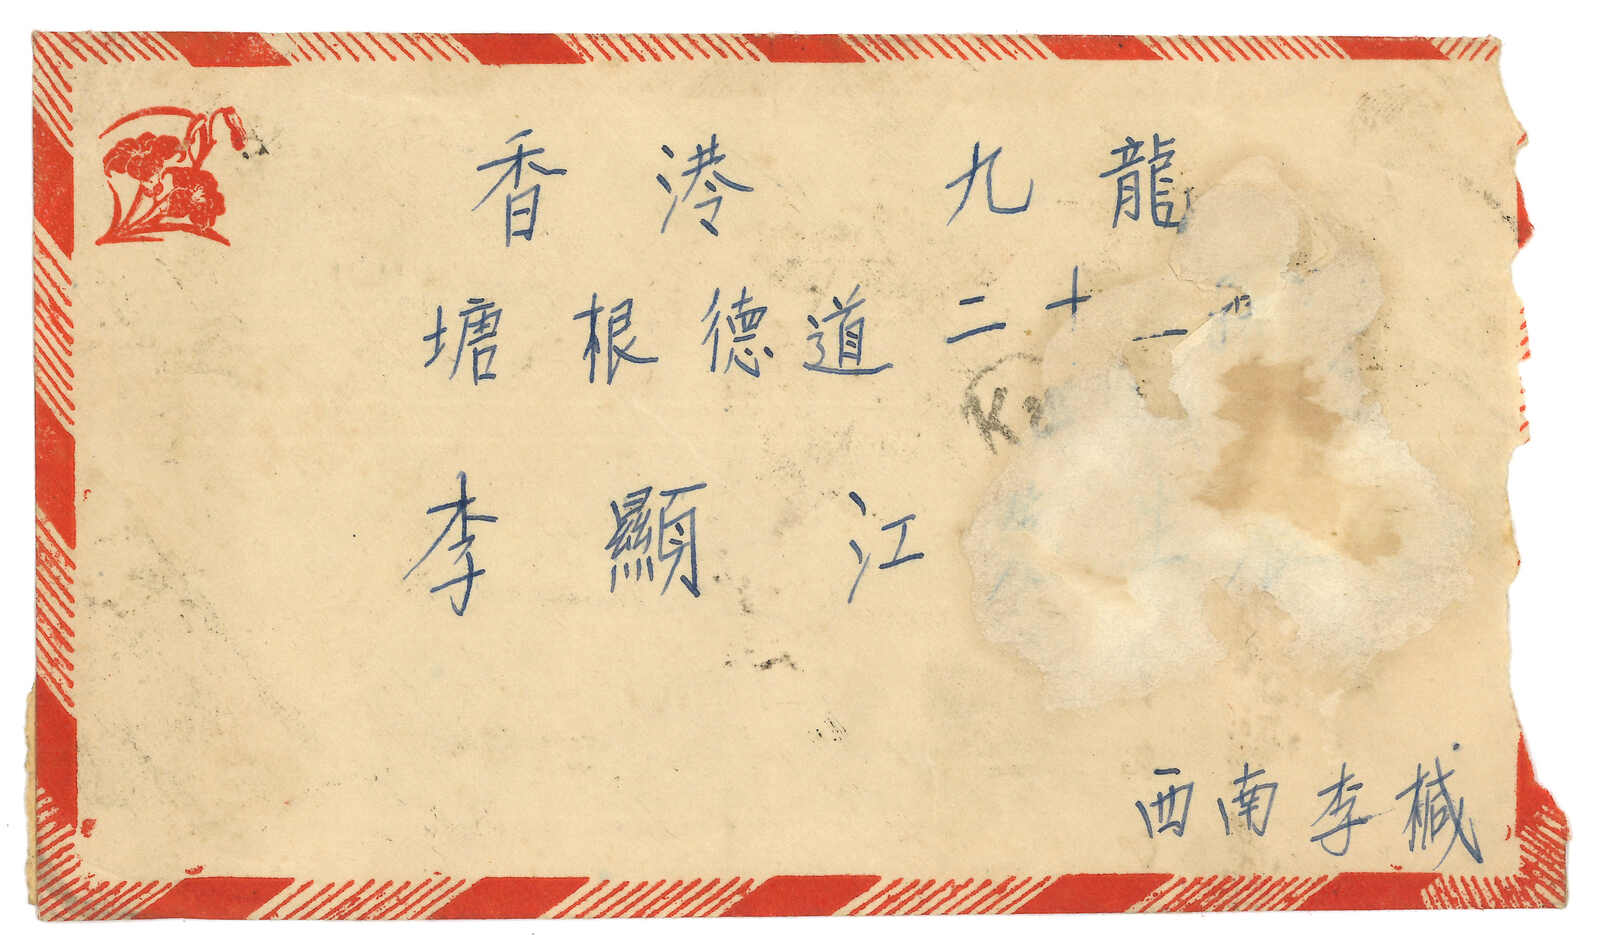 香港 九龍
塘根德道二十一
K2
李顯江
西南李椷